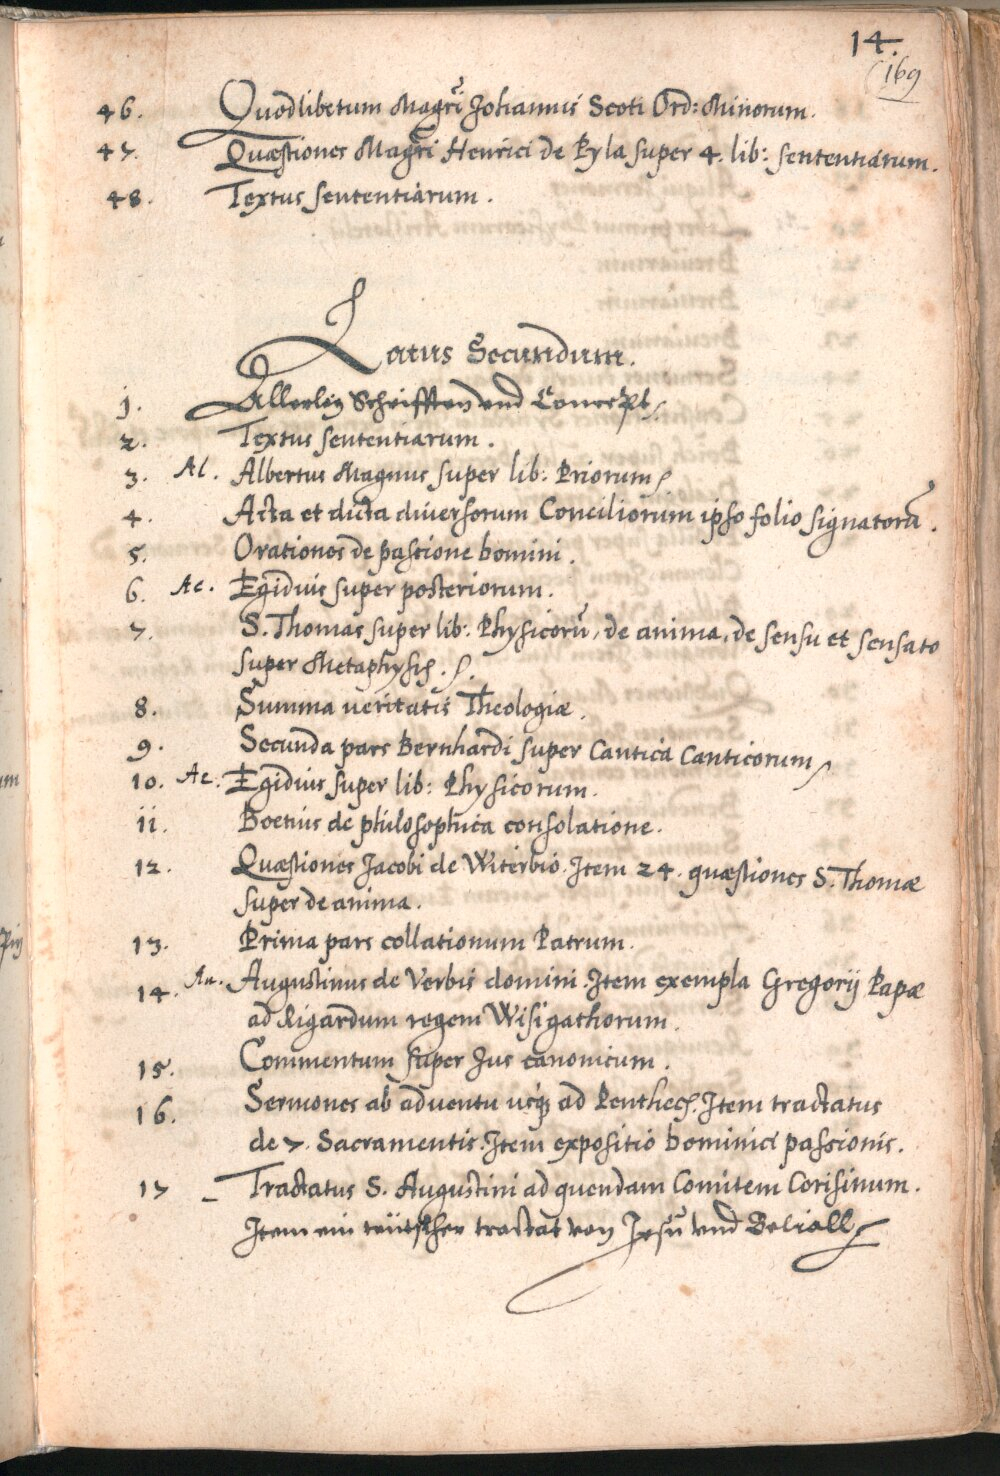 14.
(169
46. Quodlibetum Magri Johannis Scoti Ord: Minorum.
47. Quæstiones Magri Henrici de Pyla super 4. lib: sententiarum.
48. Textus sententiarum.
Latus Secundum.
1. Allerley Schrifften vnd Concept.
2. Textus sententiarum.
3. Al. Albertus Magnus super lib: Priorum
4. Acta et dicta diversorum Conciliorum ipso folio signatorū.
5. Orationes de passione domini.
6. Ae. Egidius super posteriorum.
7. S. Thomas super lib: Physicorū, de anima, de sensu et sensato
super Metaphysis.
8. Summa veritatis Theologiæ.
9. Secunda pars Bernhardi super Cantica Canticorum
10. Ae. Egidius super lib: Physicorum.
11. Boetius de philosophica consolatione.
12. Quæstiones Jacobi de Witerbio. Item 24. quæstiones S. Thomæ
super de anima.
13. Prima pars collationum Patrum.
14. Au. Augustinus de Verbis domini. Item exempla Gregorij Papæ
ad Rigardum regem Wisigathorum.
15. Commentum super Jus canonicum.
16. Sermones ab adventu usq; ad Penthec. Item tractatus
de 7. Sacramentis. Item expositio dominici passionis.
17 Tractatus S. Augustini ad quendam Comitem Corisinum.
Item ein teütscher tractat von Jesu vnd Beliall